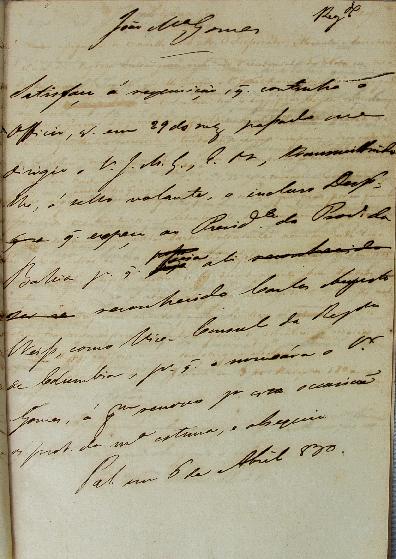 João Ma. Gomes
Regdo.
Satisfaço á requisição q. continha o
Officio, q. em 29 do mez passado me
dirigio o
lhe, á sello volante, o incluso Desp.
que q. expeço ao Presid.e da Prov.a da
Bahia pa. q. seja ali reconhecido
reconhecido Carlos Augusto
como Vice Consul da Repca.
de Columbia, pa. q. o nomeára o Sr.
Gomes, á qm. renovo pr. esta occasião
os prot. da ma. estima, e obsequio
Pal. em 6 de Abril 830.